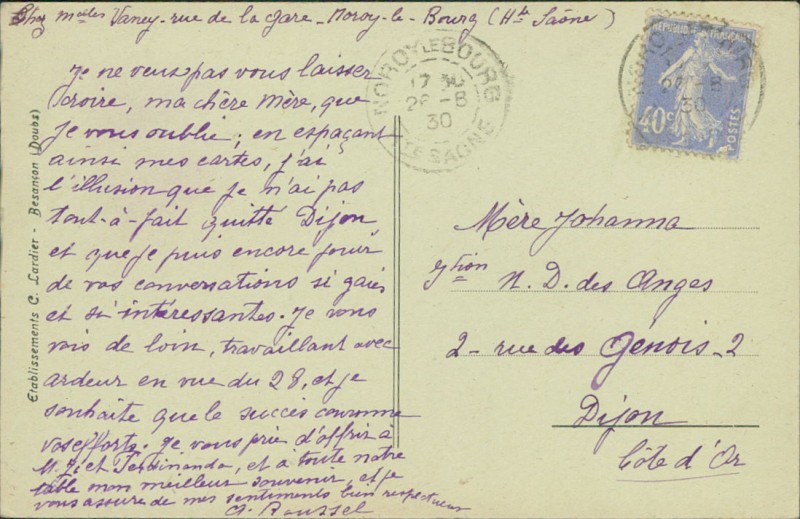 Chez melles Vaney - rue de la gare - Noroy-le-Bourg (Hte Saône)
Je ne veux pas vous laisser
croire, ma chère Mère, que
je vous oublie ; en espaçant
ainsi mes cartes, j'ai
l'illusion que je n'ai pas
tout-à-fait quitté Dijon
et que je puis encore jouir
de vos conversations si gaies
et si intéressantes. Je vous
vois de loin, travaillant avec
ardeur en vue du 28, et je
souhaite que le succès couronne
vos efforts. Je vous prie d'offrir à
et Ferdinanda, et à toute notre
table mon meilleur souvenir, et je
vous assure de mes sentiments bien respectueux
Roussel
Etablissements C. Lardier - Besançon (Doubs)
NOROY-LE-BOURG
17 30
26 -8
30
HTE SAONE
REPUBLIQUE FRANÇAISE
40c
POSTES
30
Mère Johanna
N. D. des Anges
2 - rue des Genois - 2
Dijon
Côte d'Or